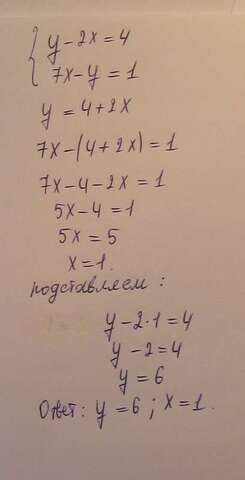 { y-2x=4
7x-y=1
y=4+2x
7x-(4+2x)=1
7x-4-2x=1
5x-4=1
5x=5
x=1.
подставляем:
y-2·1=4
y-2=4
y=6
Ответ: y=6; x=1.